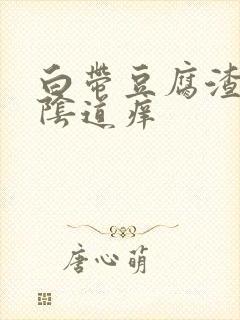 白带豆腐渣
陰道痒
唐心萌